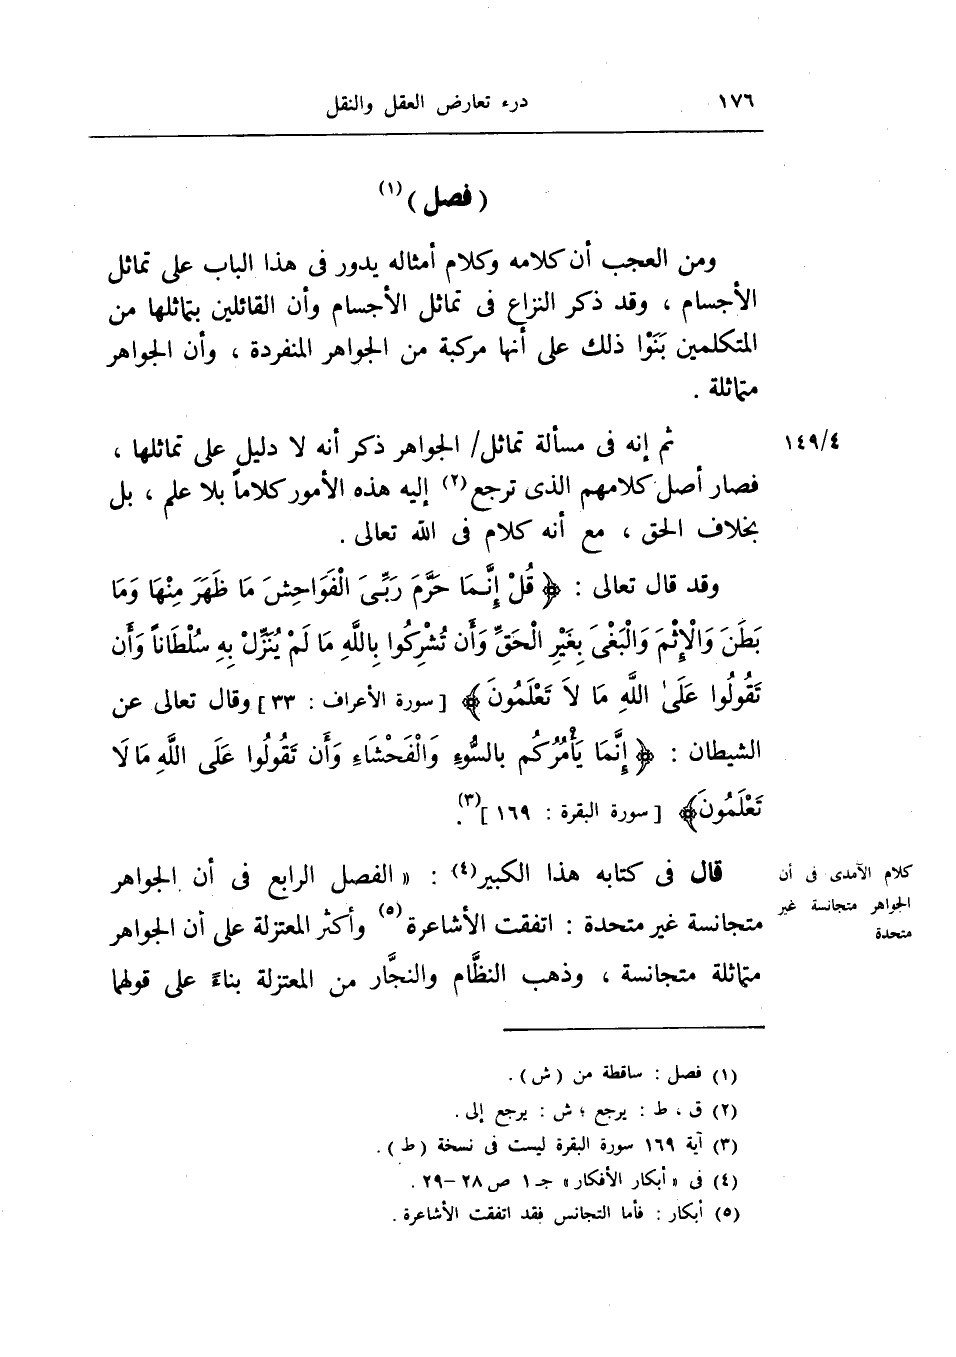 ١٧٦ درء تعارض العقل والنقل
( فصل )(١)
ومن العجب أن كلامه وكلام أمثاله يدور فى هذا الباب على تماثل
الأجسام ، وقد ذكر النزاع فى تماثل الأجسام وأن القائلين بتماثلها من
المتكلمين بَنَوْا ذلك على أنها مركبة من الجواهر المنفردة ، وأن الجواهر
متماثلة .
١٤٩/٤ ثم إنه فى مسألة تماثل/ الجواهر ذكر أنه لا دليل على تماثلها ،
فصار أصل كلامهم الذى ترجع(٢) إليه هذه الأمور كلاماً بلا علم ، بل
بخلاف الحق ، مع أنه كلام فى الله تعالى .
وقد قال تعالى : ﴿ قُلْ إِنَّمَا حَرَّمَ رَبِّىَ الْفَوَاحِشَ مَا ظَهَرَ مِنْهَا وَمَا
بَطَنَ وَالْإِثْمَ وَالْبَغْىَ بِغَيْرِ الْحَقِّ وَأَن تُشْرِكُوا بِاللَّهِ مَا لَمْ يُنَزِّلْ بِهِ سُلْطَاناً وَأَن
تَقُولُوا عَلَىٰ اللَّهِ مَا لاَ تَعْلَمُونَ ﴾ [ سورة الأعراف : ٣٣ ] وقال تعالى عن
الشيطان : ﴿ إِنَّمَا يَأْمُرُكُم بالسُّوءِ وَالْفَحْشَاءِ وَأَن تَقُولُوا عَلَى اللَّهِ مَا لَا
تَعْلَمُونَ﴾ [ سورة البقرة : ١٦٩ ](٣).
قال فى كتابه هذا الكبير(٤) : « الفصل الرابع فى أن الجواهر
متجانسة غير متحدة : اتفقت الأشاعرة(٥) وأكثر المعتزلة على أن الجواهر
متماثلة متجانسة ، وذهب النظَّام والنجَّار من المعتزلة بناءً على قولهما
كلام الآمدى فى أن
الجواهر متجانسة غير
متحدة
(١) فصل : ساقطة من ( ش ) .
(٢) ق ، ط : يرجع ؛ ش : يرجع إلى .
(٣) آية ١٦٩ سورة البقرة ليست فى نسخة ( ط ) .
(٤) فى « أبكار الأفكار » جـ ١ ص ٢٨ -٢٩ .
(٥) أبكار : فأما التجانس فقد اتفقت الأشاعرة .